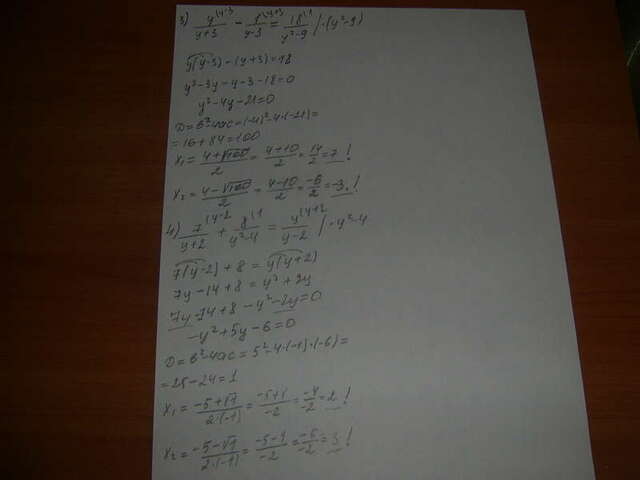 3) y\y-3 / y+3 - 1\y+3 / y-3 = 18\1 / y²-9 / ·(y²-9)
y(y-3) - (y+3) = 18
y²-3y-y-3-18=0
y²-4y-21=0
D=b²-4ac=(-4)²-4·(-21)=
=16+84=100
x₁ = 4+√100 / 2 = 4+10 / 2 = 14 / 2 = 7 !
x₂ = 4-√100 / 2 = 4-10 / 2 = -6 / 2 = -3. !
4) 7\y-2 / y+2 + 8\1 / y²-4 = y\y+2 / y-2 / ·y²-4
7(y-2) + 8 = y(y+2)
7y-14+8 = y²+2y
7y-14+8-y²-2y=0
-y²+5y-6=0
D=b²-4ac=5²-4·(-1)·(-6)=
=25-24=1
x₁ = -5+√1 / 2·(-1) = -5+1 / -2 = -4 / -2 = 2 !
x₂ = -5-√1 / 2·(-1) = -5-1 / -2 = -6 / -2 = 3 !